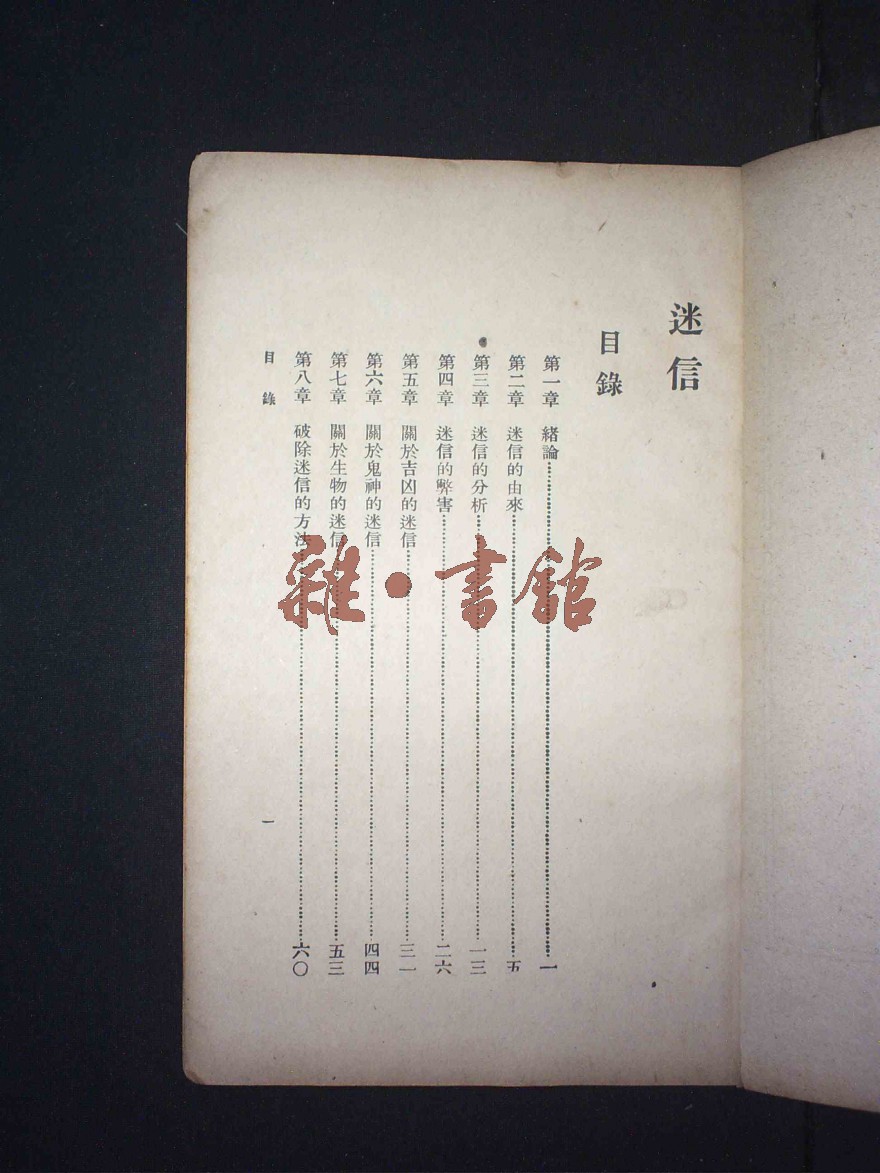 迷信
目錄
第一章 緒論……一
第二章 迷信的由來……五
第三章 迷信的分析……一三
第四章 迷信的弊害……二六
第五章 關於吉凶的迷信……三一
第六章 關於鬼神的迷信……四四
第七章 關於生物的迷信……五三
第八章 破除迷信的方法……六〇
目錄
一
雜·書館